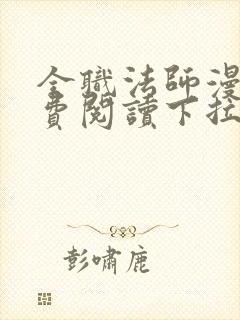 全職法師漫
費閱讀下拉
彭嘯鹿